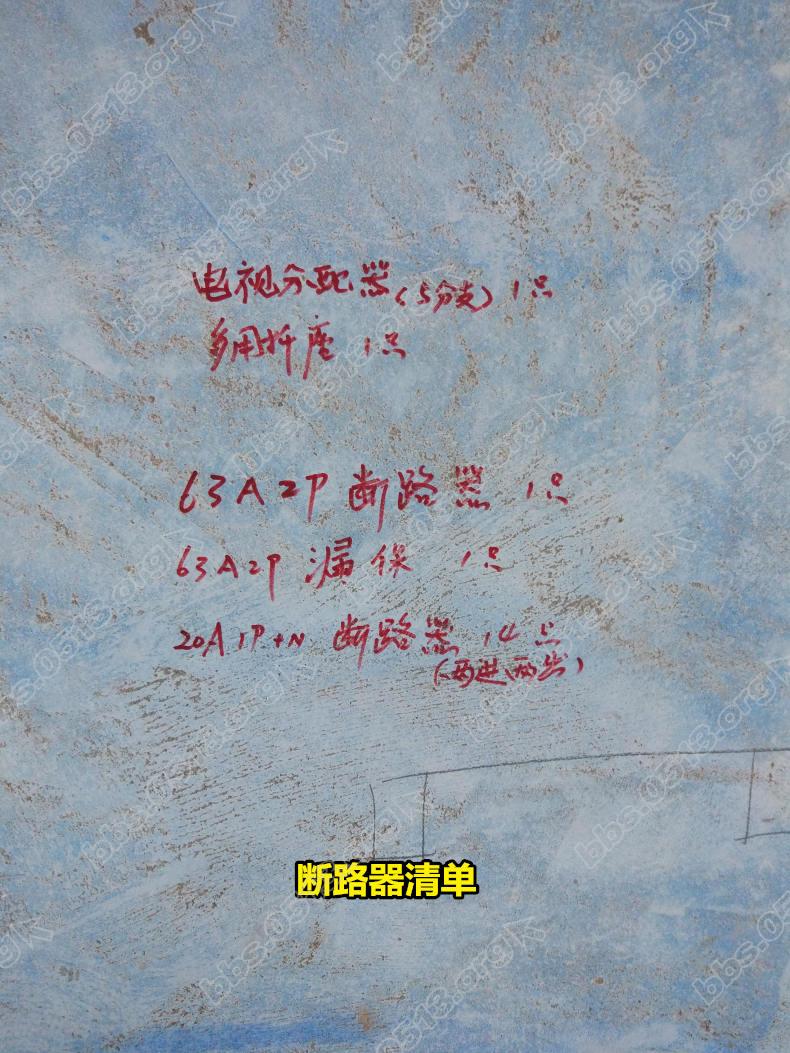 电视分配器(5分支) 1只
多用插座 1只
63A 2P 断路器 1只
63A 2P 漏保 1只
20A 1P+N 断路器 14只
(两进两出)
断路器清单
bbs.0513.org